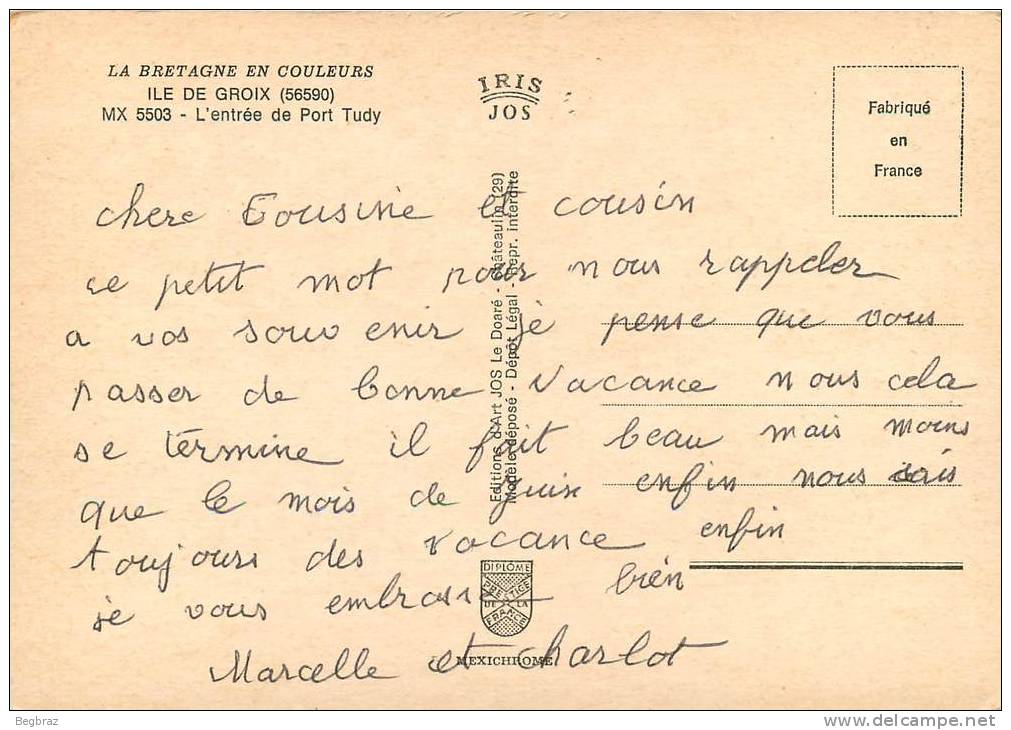 LA BRETAGNE EN COULEURS
ILE DE GROIX (56590)
MX 5503 - L'entrée de Port Tudy
IRIS
JOS
Fabriqué
en
France
chere Cousine et cousin
ce petit mot pour nous rappeler
a vos souvenir je pense que vous
passer de bonne vacance nous cela
se termine il fait beau mais moins
que le mois de juin enfin nous
toujours des vacance enfin
je vous embrasse bien
Marcelle et Charlot
Editions d'Art JOS Le Doaré - Châteaulin (29)
Modèle déposé - Dépôt Légal - Repr. interdite
DIPLOME
PRESTIGE
DE LA
FRANCE
MEXICHROME
Begbraz
delcampe.net